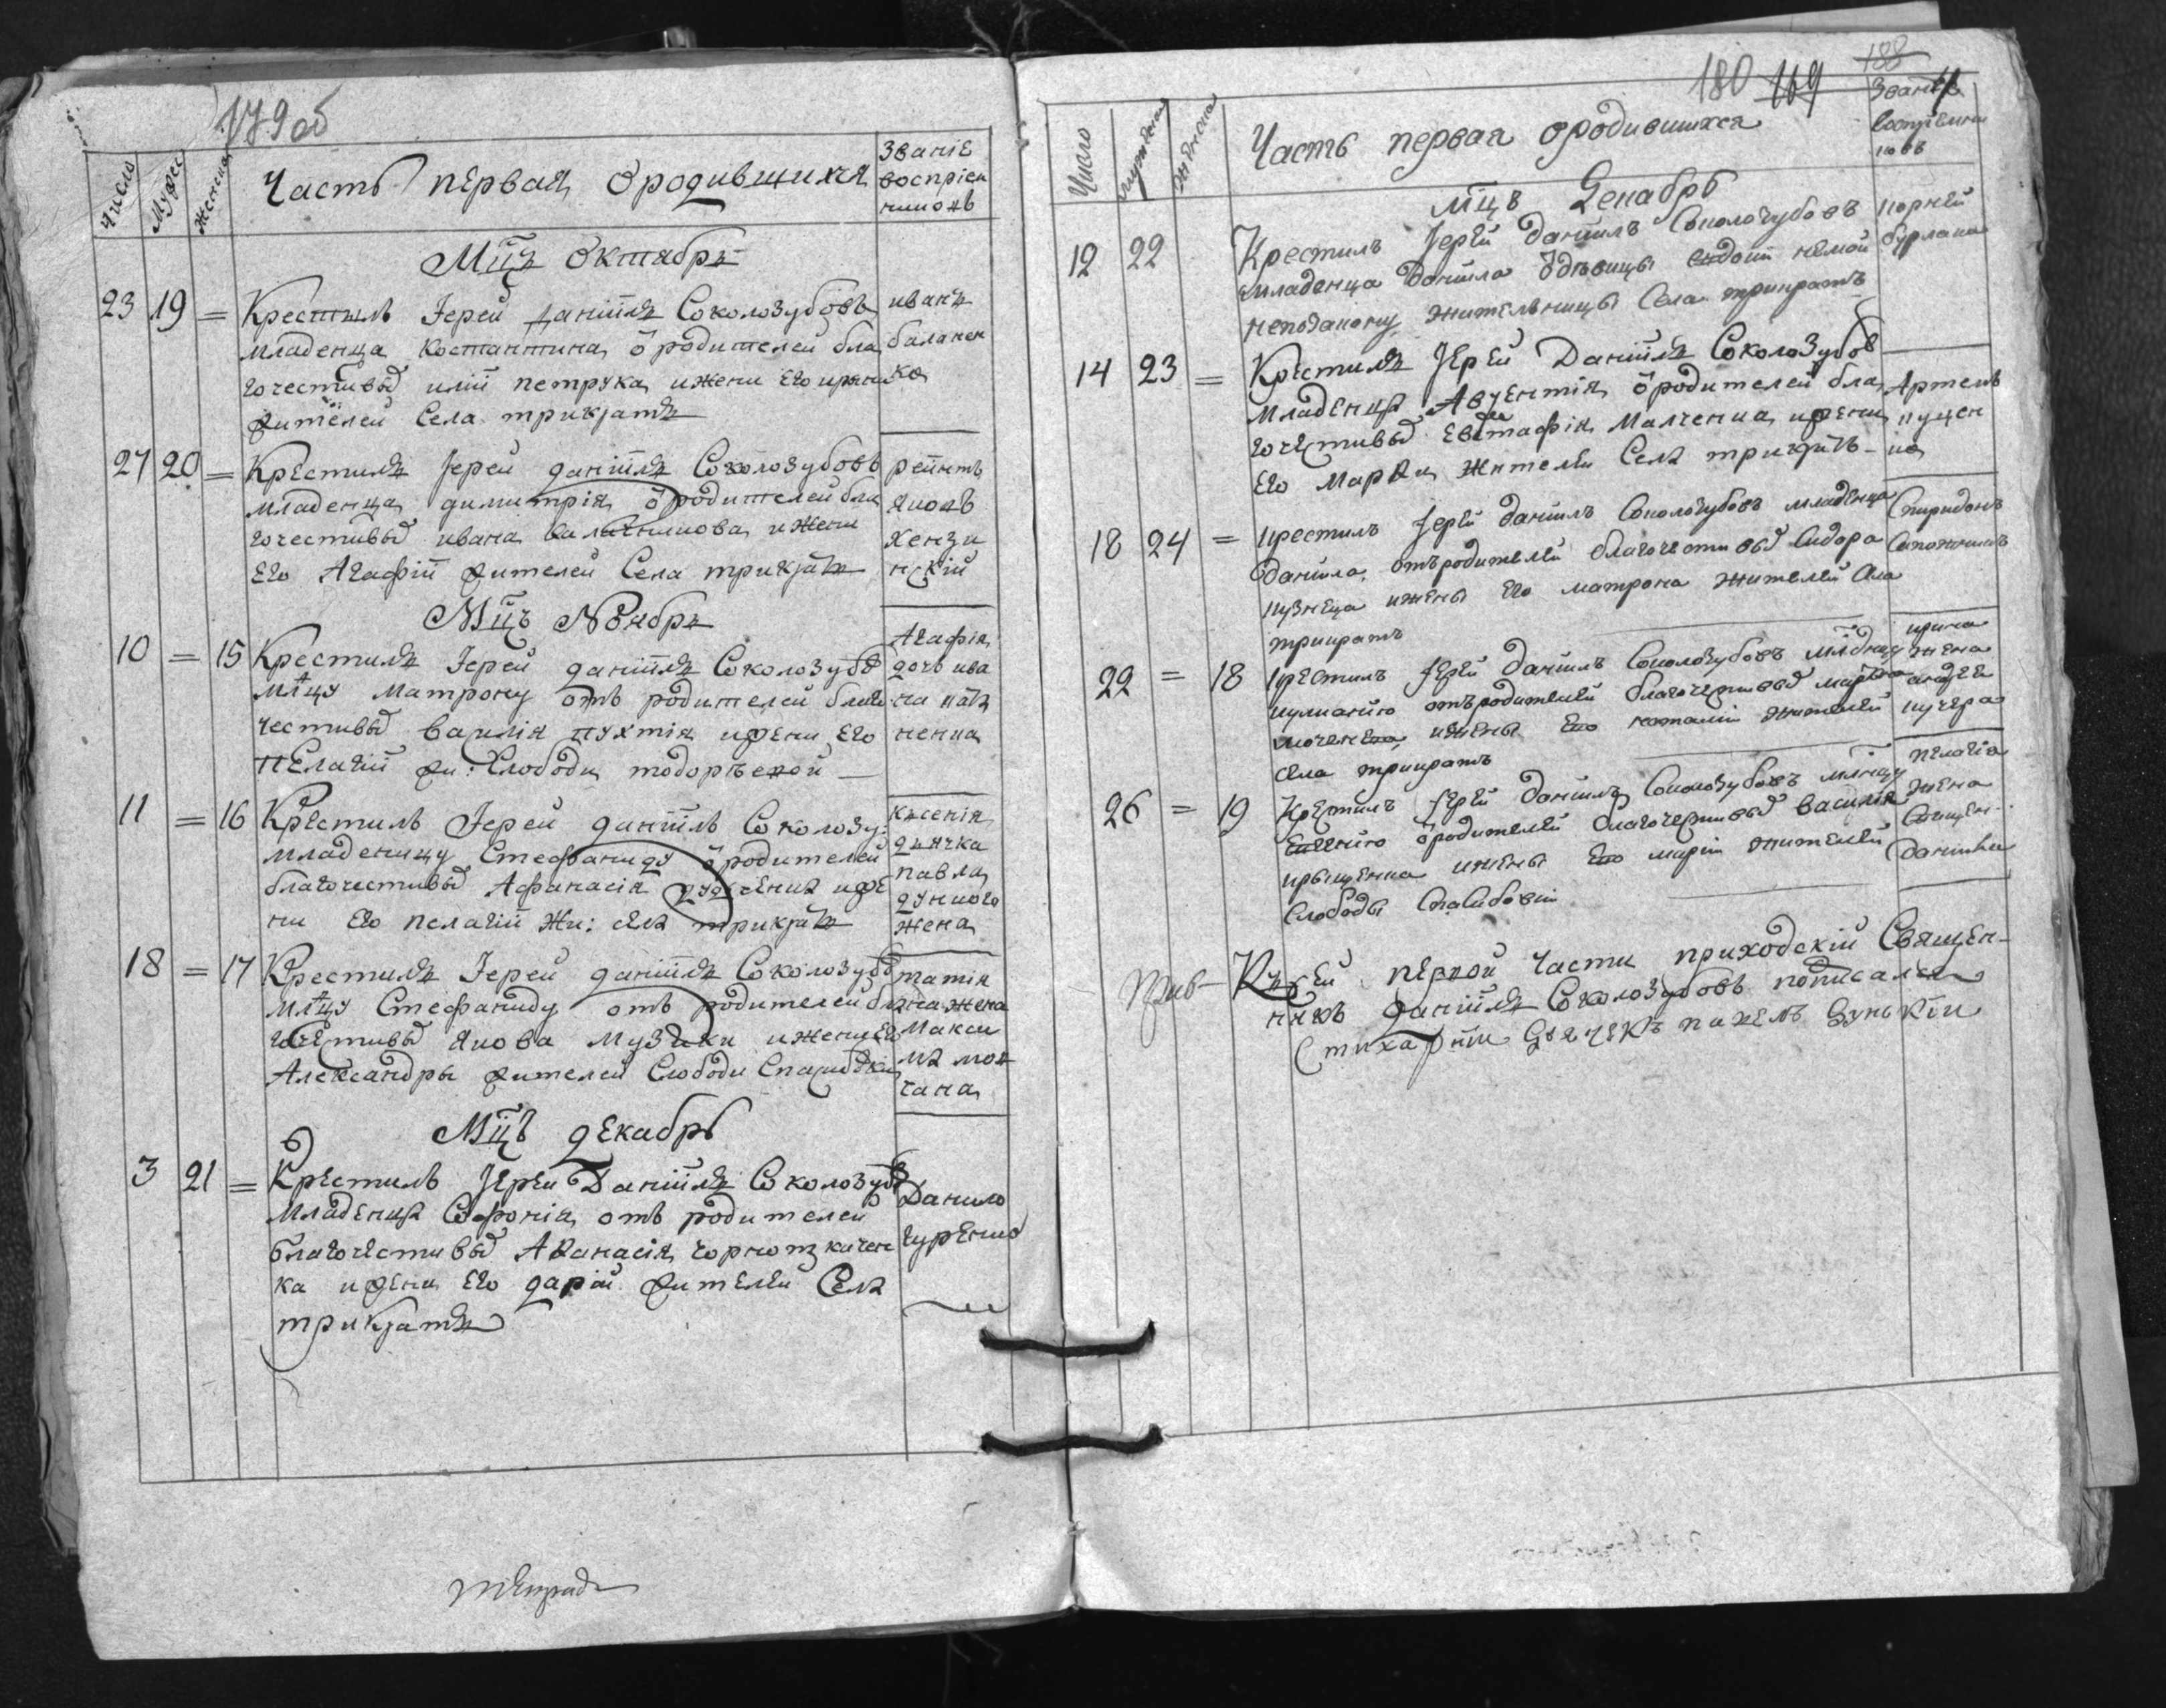 179 об
Число
Муж
Женска
Часть первая о родившихся
Званіе
воспріем
никовъ
Мцъ Октябрь
23 19 = Крестилъ Іерей Даніилъ Соколозубовъ
младенца Костантина, о родителей бла
гочестивыхъ иліи петрука, и жени его ирини
жителей Села трикратъ
иванъ
баланен
ка
27 20 = Крестилъ Іерей даніилъ Соколозубовъ
младенца, димитрія, о родителей бла
гочестивыхъ ивана и жени
его Агафіи жителей Села трикратъ
яковъ
Мцъ Ноябрь
10 = 15 Крестилъ Іерей даніилъ Соколозубо
млцу матрону отъ родителей благо
честивыхъ василія пухтія, и жени его
пелагіи жи: Слободи
Агафія,
дочь ива
на
ненка
11 = 16 Крестилъ Іерей даніилъ Соколозу:
младеницу Стефаниду о родителей
благочестивыхъ Афанасія и же
ни его пелагіи жи: села трикратъ
ксенія
дьячка
павла
дункого
жена
18 = 17 Крестилъ Іерей даніилъ Соколозубо
млцу Стефаниду отъ родителей бла
гочестивыхъ якова музики и жени его
Александры жителей Слободи
татія
на жена
Макси
ма мол
чана
Мцъ декабрь
3 21 = Крестилъ Іерей Даніилъ Соколозубо
младенца Софонія, отъ родителей
благочестивыхъ Афанасія
ка и жени его даріи жителей Села
трикратъ
Данило
гуренко
180 119 188
Число
мужеска
женска
Часть первая о родившихся
Званіе
воспріемни
ковъ
мцъ Декабрь
12 22 Крестилъ Іерей Даніилъ Соколозубовъ
младенца Даніила одѣвицы
жительницы Села трикратъ
корній
бурлака
14 23 = Крестилъ Іерей Даніилъ Соколозубов
младенца Авѯентія о родителей бла
гочестивыхъ Евстафія, Малченка, и жени
его Марѳи, жителей Села трикратъ
Артемъ
куцен
ка
18 24 = крестилъ Іерей Даніилъ Соколозубовъ младенца
Даніила, отъ родителей благочестивыхъ Сидора
кузнеца и жены его матрона жителей Села
трикратъ
Спиридонъ
Сапожникъ
22 = 18 крестилъ Іерей Даніилъ Соколозубовъ млднцу
иулианію отъ родителей благочестивыхъ
и жены его наталіи жителей
Села трикратъ
ирина
жена
андрея
кучера
26 = 19 Крестилъ Іерей Даніилъ Соколозубовъ млнцу
Евгенію о родителей благочестивыхъ василія
крыщенка и жены его маріи жителей
Слободы
пелагія
жена
Священ:
Даніила
Ксей первой части приходскій Священ-
никъ Даніилъ Соколозубовъ подписался
Стихарнiй Дьячекъ павелъ Дунькiй